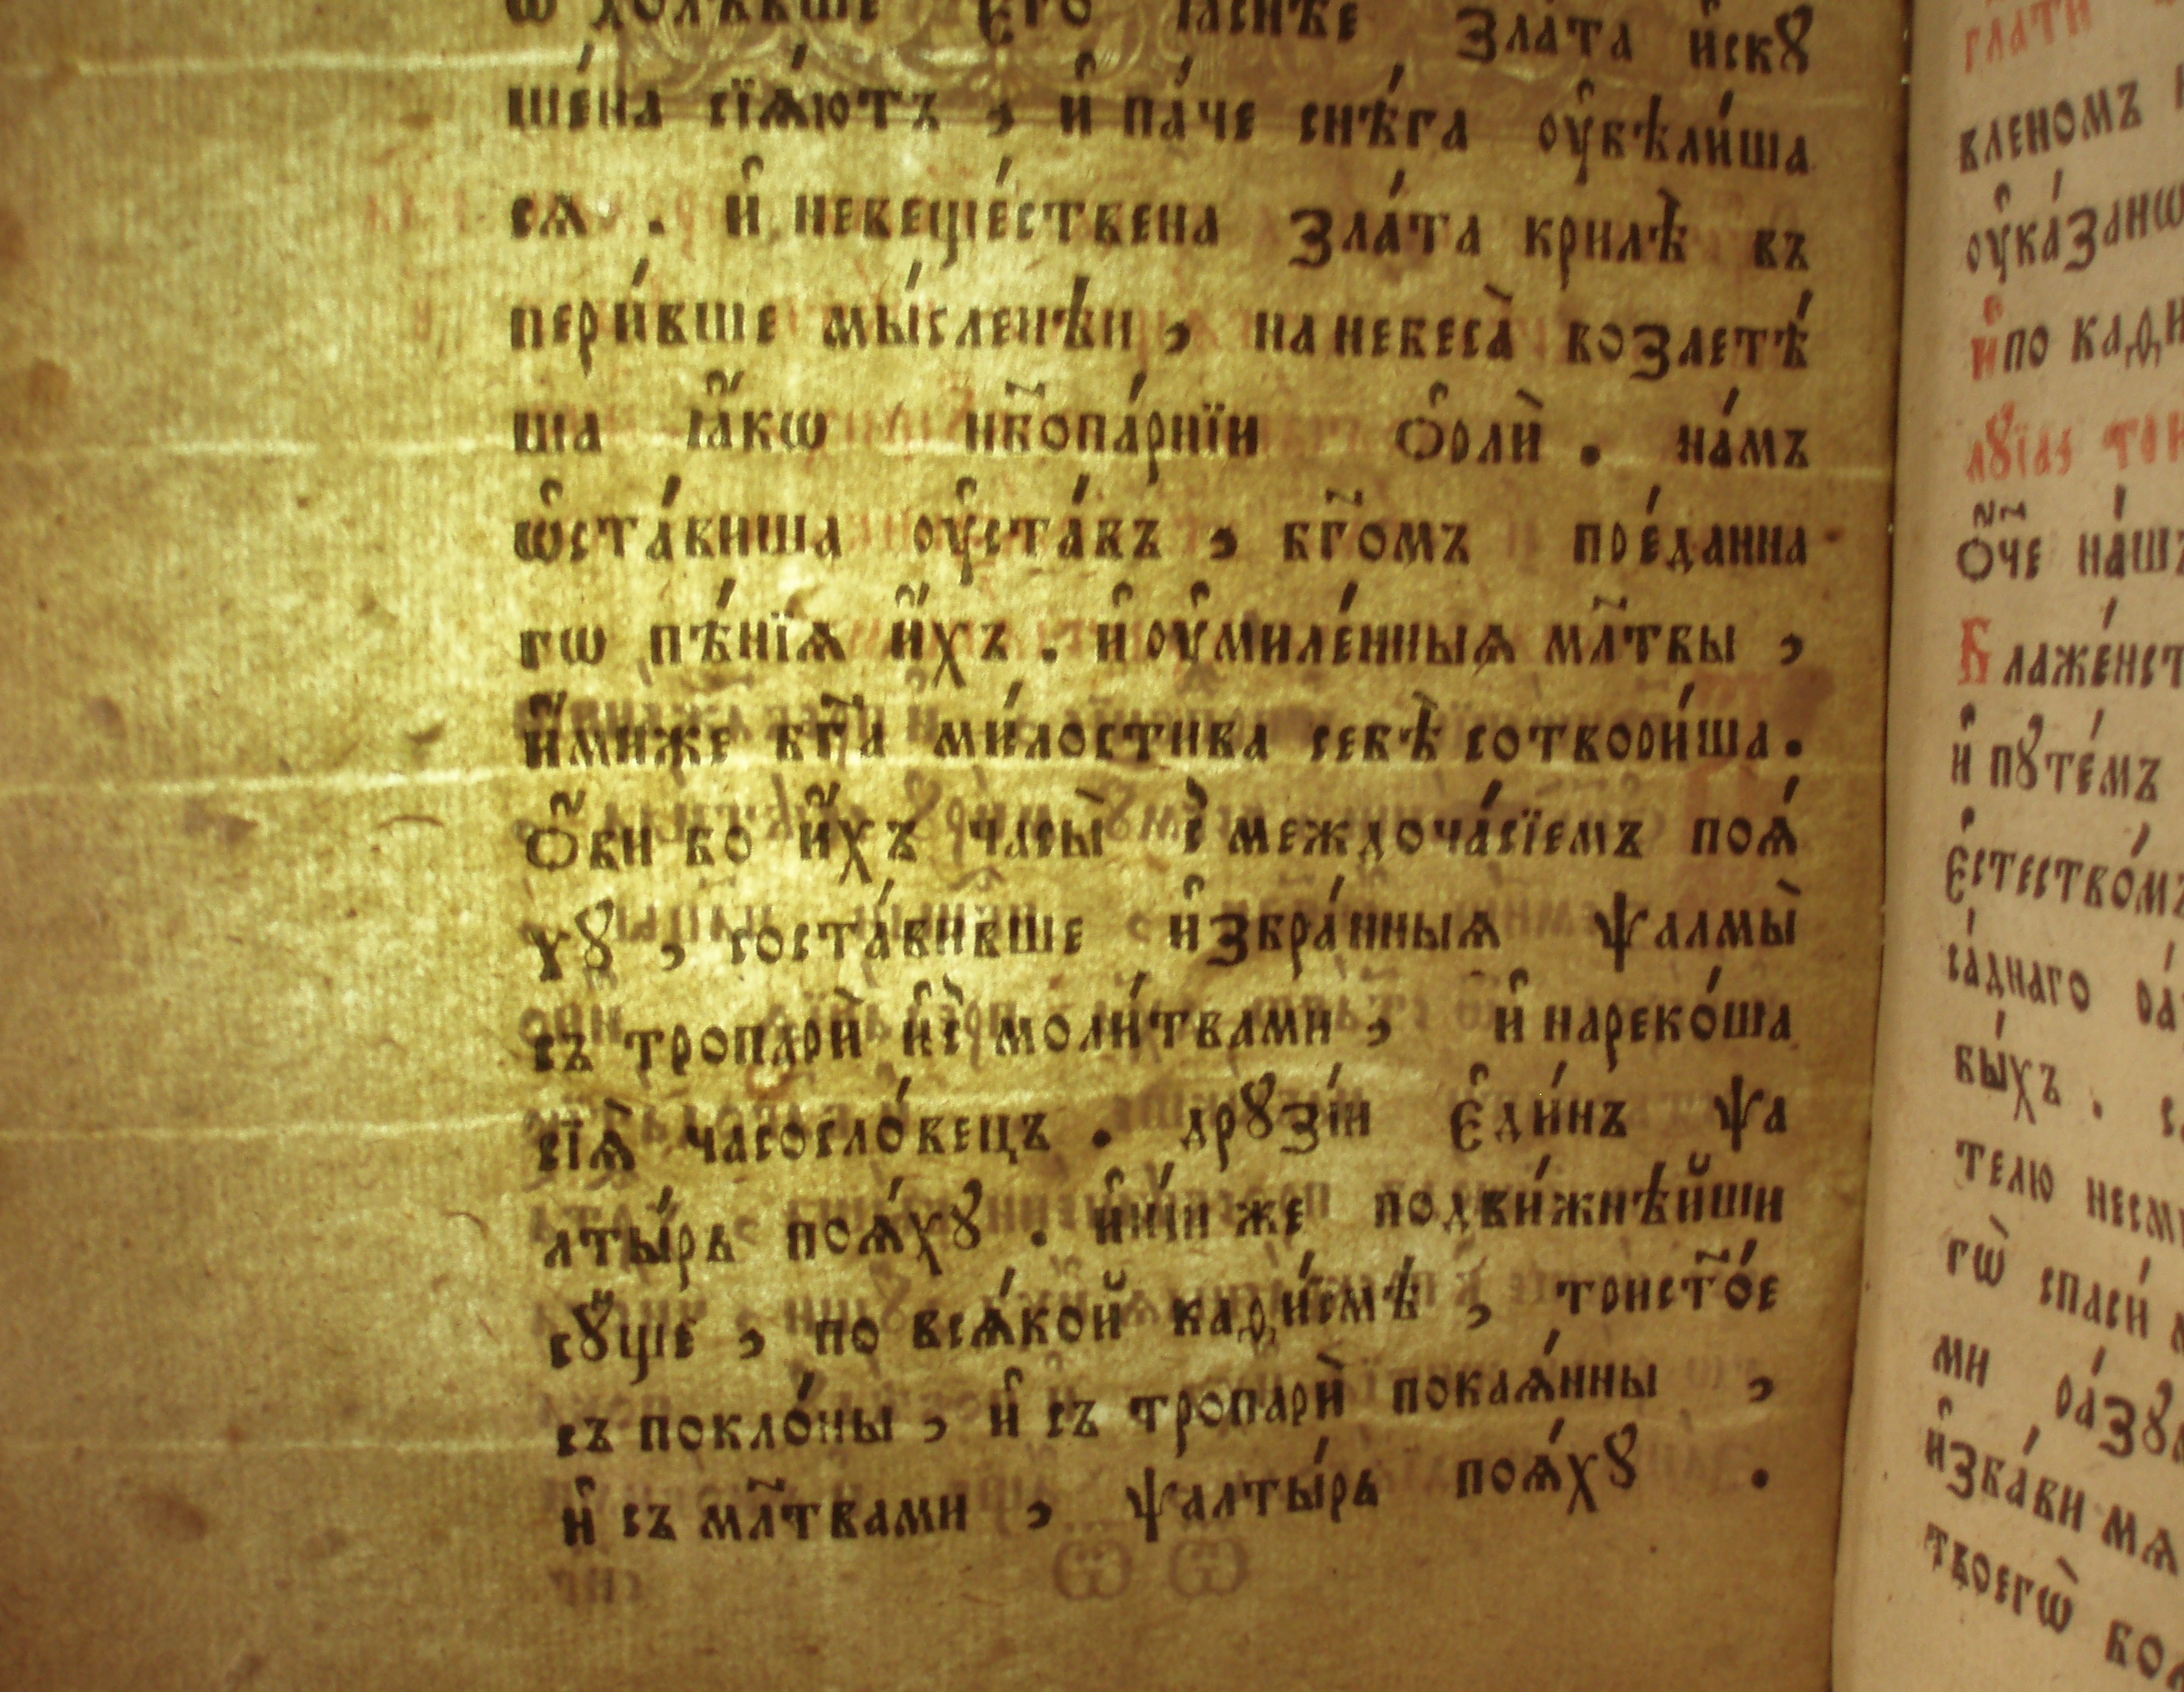 ѡ҆долѣвше є҆го̀ ꙗ҆снѣе зла́та и҆скꙋ
ше́на сїѧ́ютъ , и҆ па́че снѣ́га ᲂу҆бѣли́ша
сѧ . и҆ невеще́ствена зла́та крилѣ̀ въ
пери́вше мы́сленѣи , на небеса̀ возлетѣ́
ша ꙗ҆́кѡ нб҃опа́рнїи ѻ҆рлѝ . на́мъ
ѡ҆ста́виша ᲂу҆ста́въ , бг҃омъ пре́данна
гѡ пѣ́нїѧ и҆́хъ . и҆ ᲂу҆миле́нныѧ мл҃твы ,
и҆́миже бг҃а ми́лостива себѣ̀ сотвори́ша .
ѻ҆́ви бо и҆́хъ часы̀ с̾ междоча́сїемъ поѧ́
хꙋ , соста́вивше и҆збра́нныѧ ѱалмы̀
съ тропарѝ и҆ с̾ моли́твами , и҆ нареко́ша
сїѧ̀ часосло́вецъ . дрꙋзі́и є҆ди́нъ ѱа
лты́рь поѧ́хꙋ . и҆ні́и же подви́жнѣйши
сꙋ́ще , по всѧ́кой каѳи́смѣ , трист҃о́е
съ покло́ны , и҆ съ тропарѝ покаѧ́нны ,
и҆ съ мл҃твами , ѱалты́рь поѧ́хꙋ .
гл҃ати
вленомъ
ᲂу҆ка́занѡ
и҆ по каѳи
лꙋїаз
ѻ҆́ч҃е на́шъ
Блаже́нст
и҆ пꙋте́мъ
є҆стество́мъ
са́днаго ра́
вы́хъ . с
телю несм
гѡ̀ спасѝ м
ми ра́зꙋм
и҆зба́ви мѧ
твоегѡ̀ во